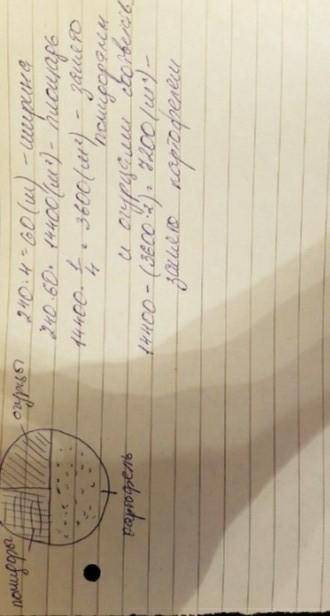 240:4=60(м) - ширина
240·60=14400(м²) - площадь
14400·1/4=3600(м²) - занято
помидорами
и огурцами соответств.
14400-(3600·2)=7200(м²) -
занято картофелем
помидоры
огурцы
картофель